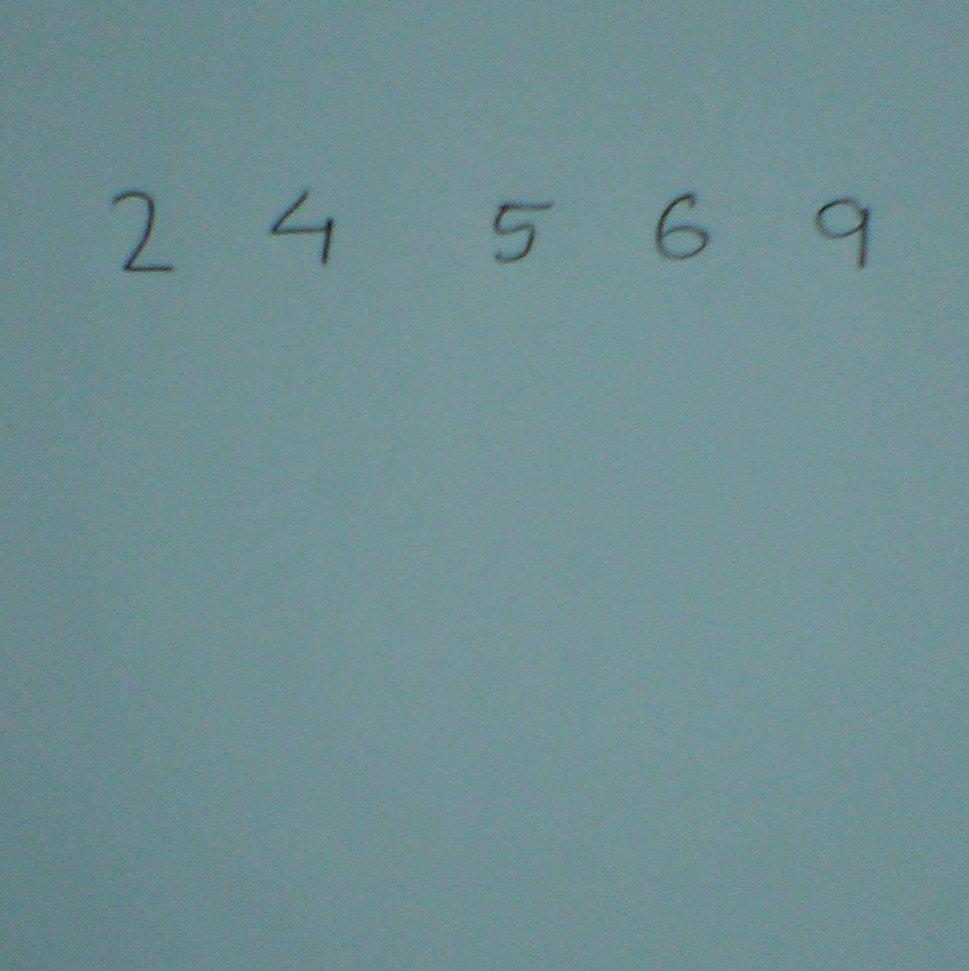 2 4 5 6 9